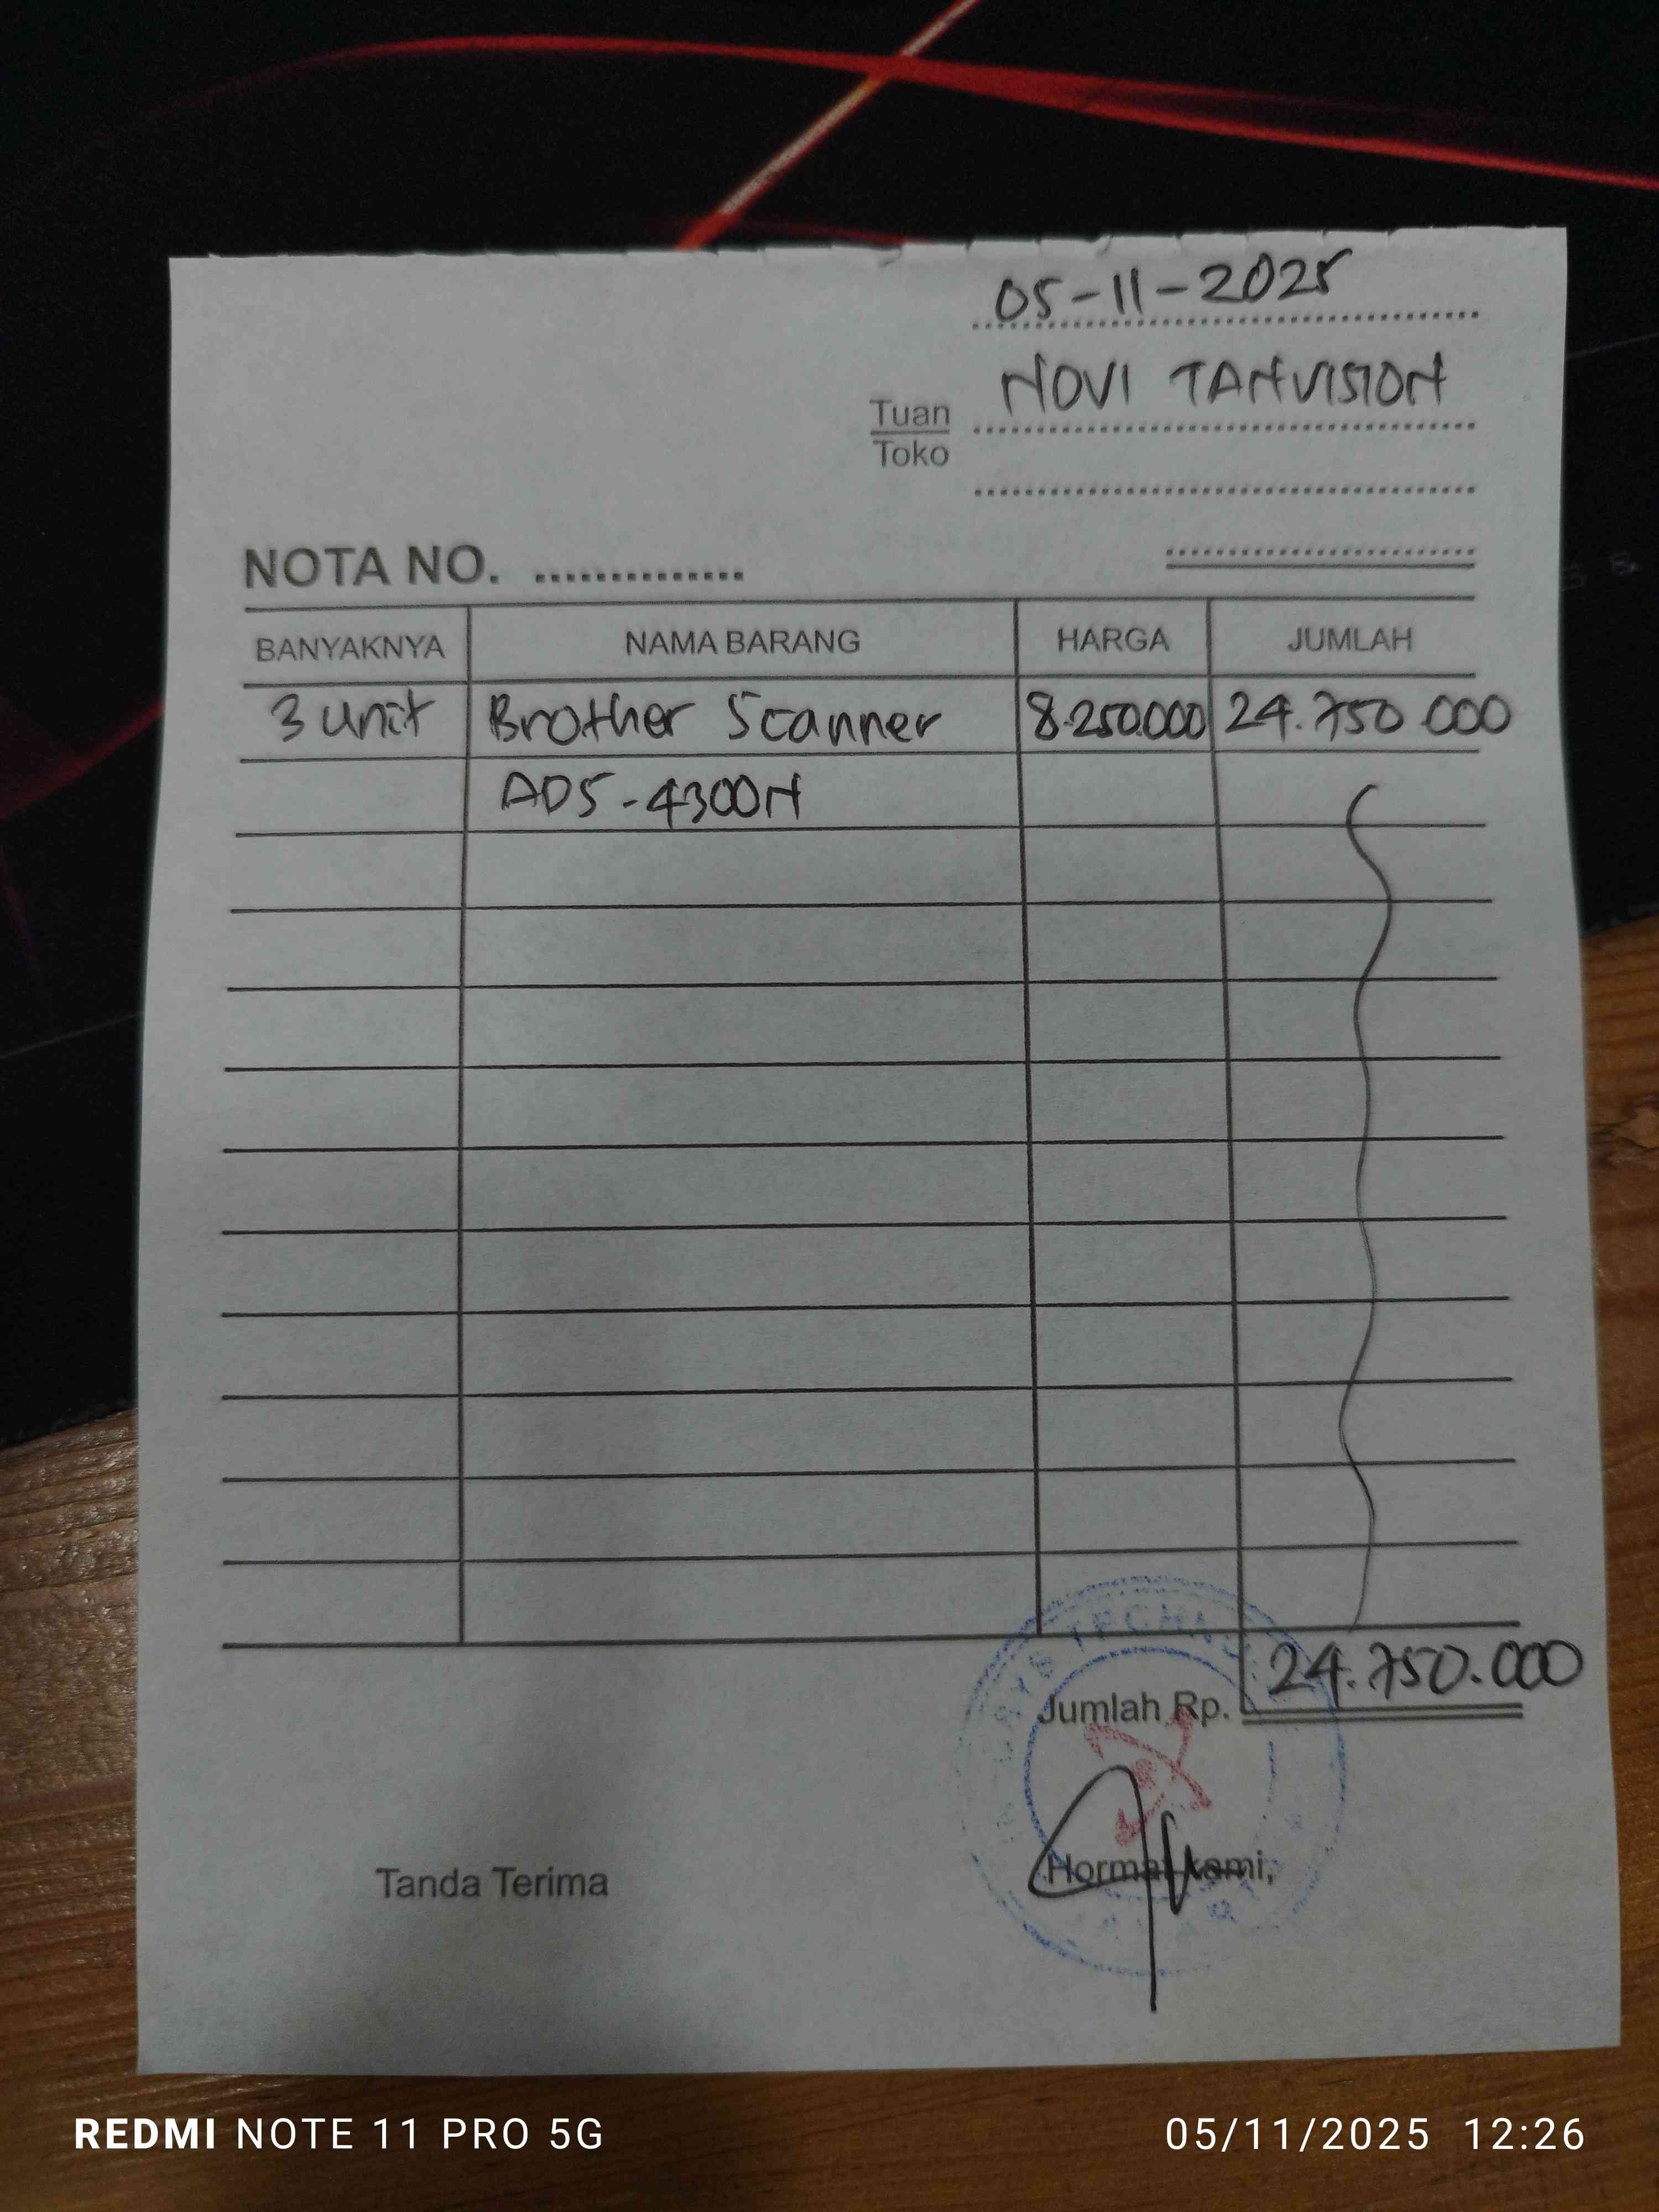 05-11-2025
NOVI TANVISION
Tuan
Toko
NOTA NO.
BANYAKNYA NAMA BARANG HARGA JUMLAH
3 unit Brother Scanner 8.250.000 24.750.000
ADS-4300N
24.750.000
Jumlah Rp.
Tanda Terima Hormat kami,
REDMI NOTE 11 PRO 5G 05/11/2025 12:26